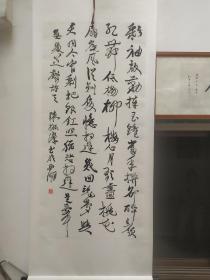 彩袖殷勤捧玉鍾當年拚却醉顏
紅舞低楊柳樓心月歌盡桃花
扇底風從别後憶相逢幾回魂夢與
君同今宵剩把銀釭照猶恐相逢是夢中
晏幾道